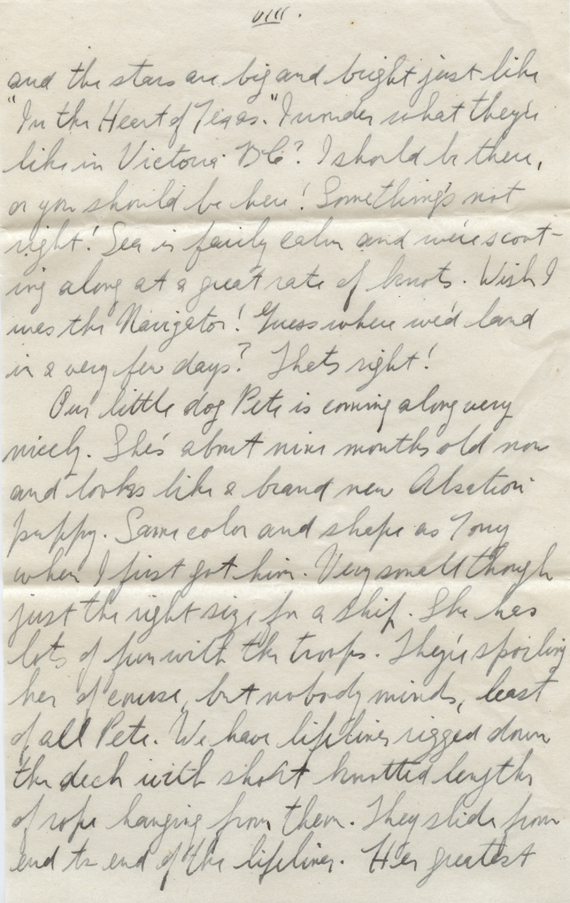 VIII.
and the stars are big and bright just like
"In the Heart of Texas." I wonder what they're
like in Victoria BC? I should be there,
or you should be here! Something's not
right! Sea is fairly calm and we're scoot-
ing along at a great rate of knots. Wish I
was the Navigator! Guess where we'd land
in a very few days? Thats right!
Our little dog Pete is coming along very
nicely. She's about nine months old now
and looks like a brand new Alsation
puppy. Same color and shape as Tony
when I first got him. Very small though
just the right size for a ship. She has
lots of fun with the troops. They're spoiling
her of course, but nobody minds, least
of all Pete. We have lifelines rigged down
the deck with short knotted lengths
of rope hanging from them. They slide from
end to end of the lifelines. Her greatest